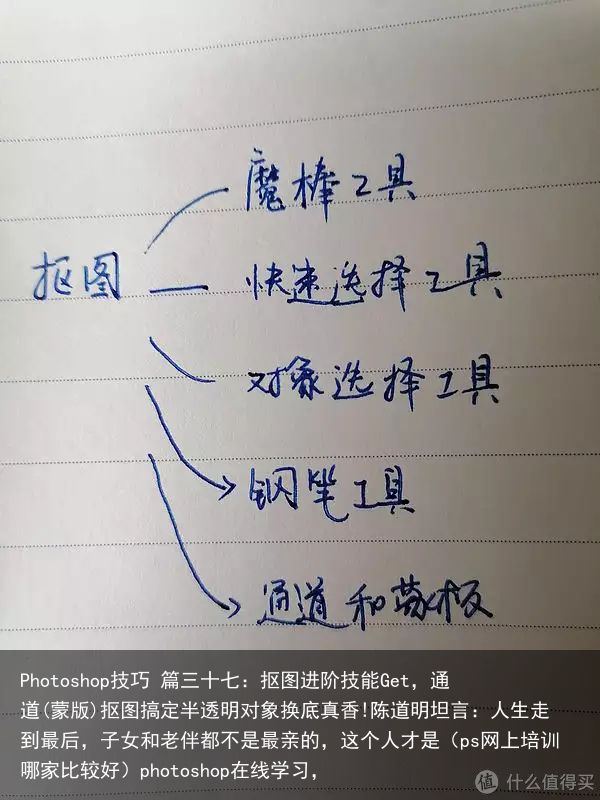 魔棒工具
抠图
快速选择工具
对象选择工具
钢笔工具
通道和蒙板
Photoshop技巧 篇三十七：抠图进阶技能Get，通
道(蒙版)抠图搞定半透明对象换底真香!陈道明坦言：人生走
到最后，子女和老伴都不是最亲的，这个人才是（ps网上培训
哪家比较好）photoshop在线学习，
值 什么值得买